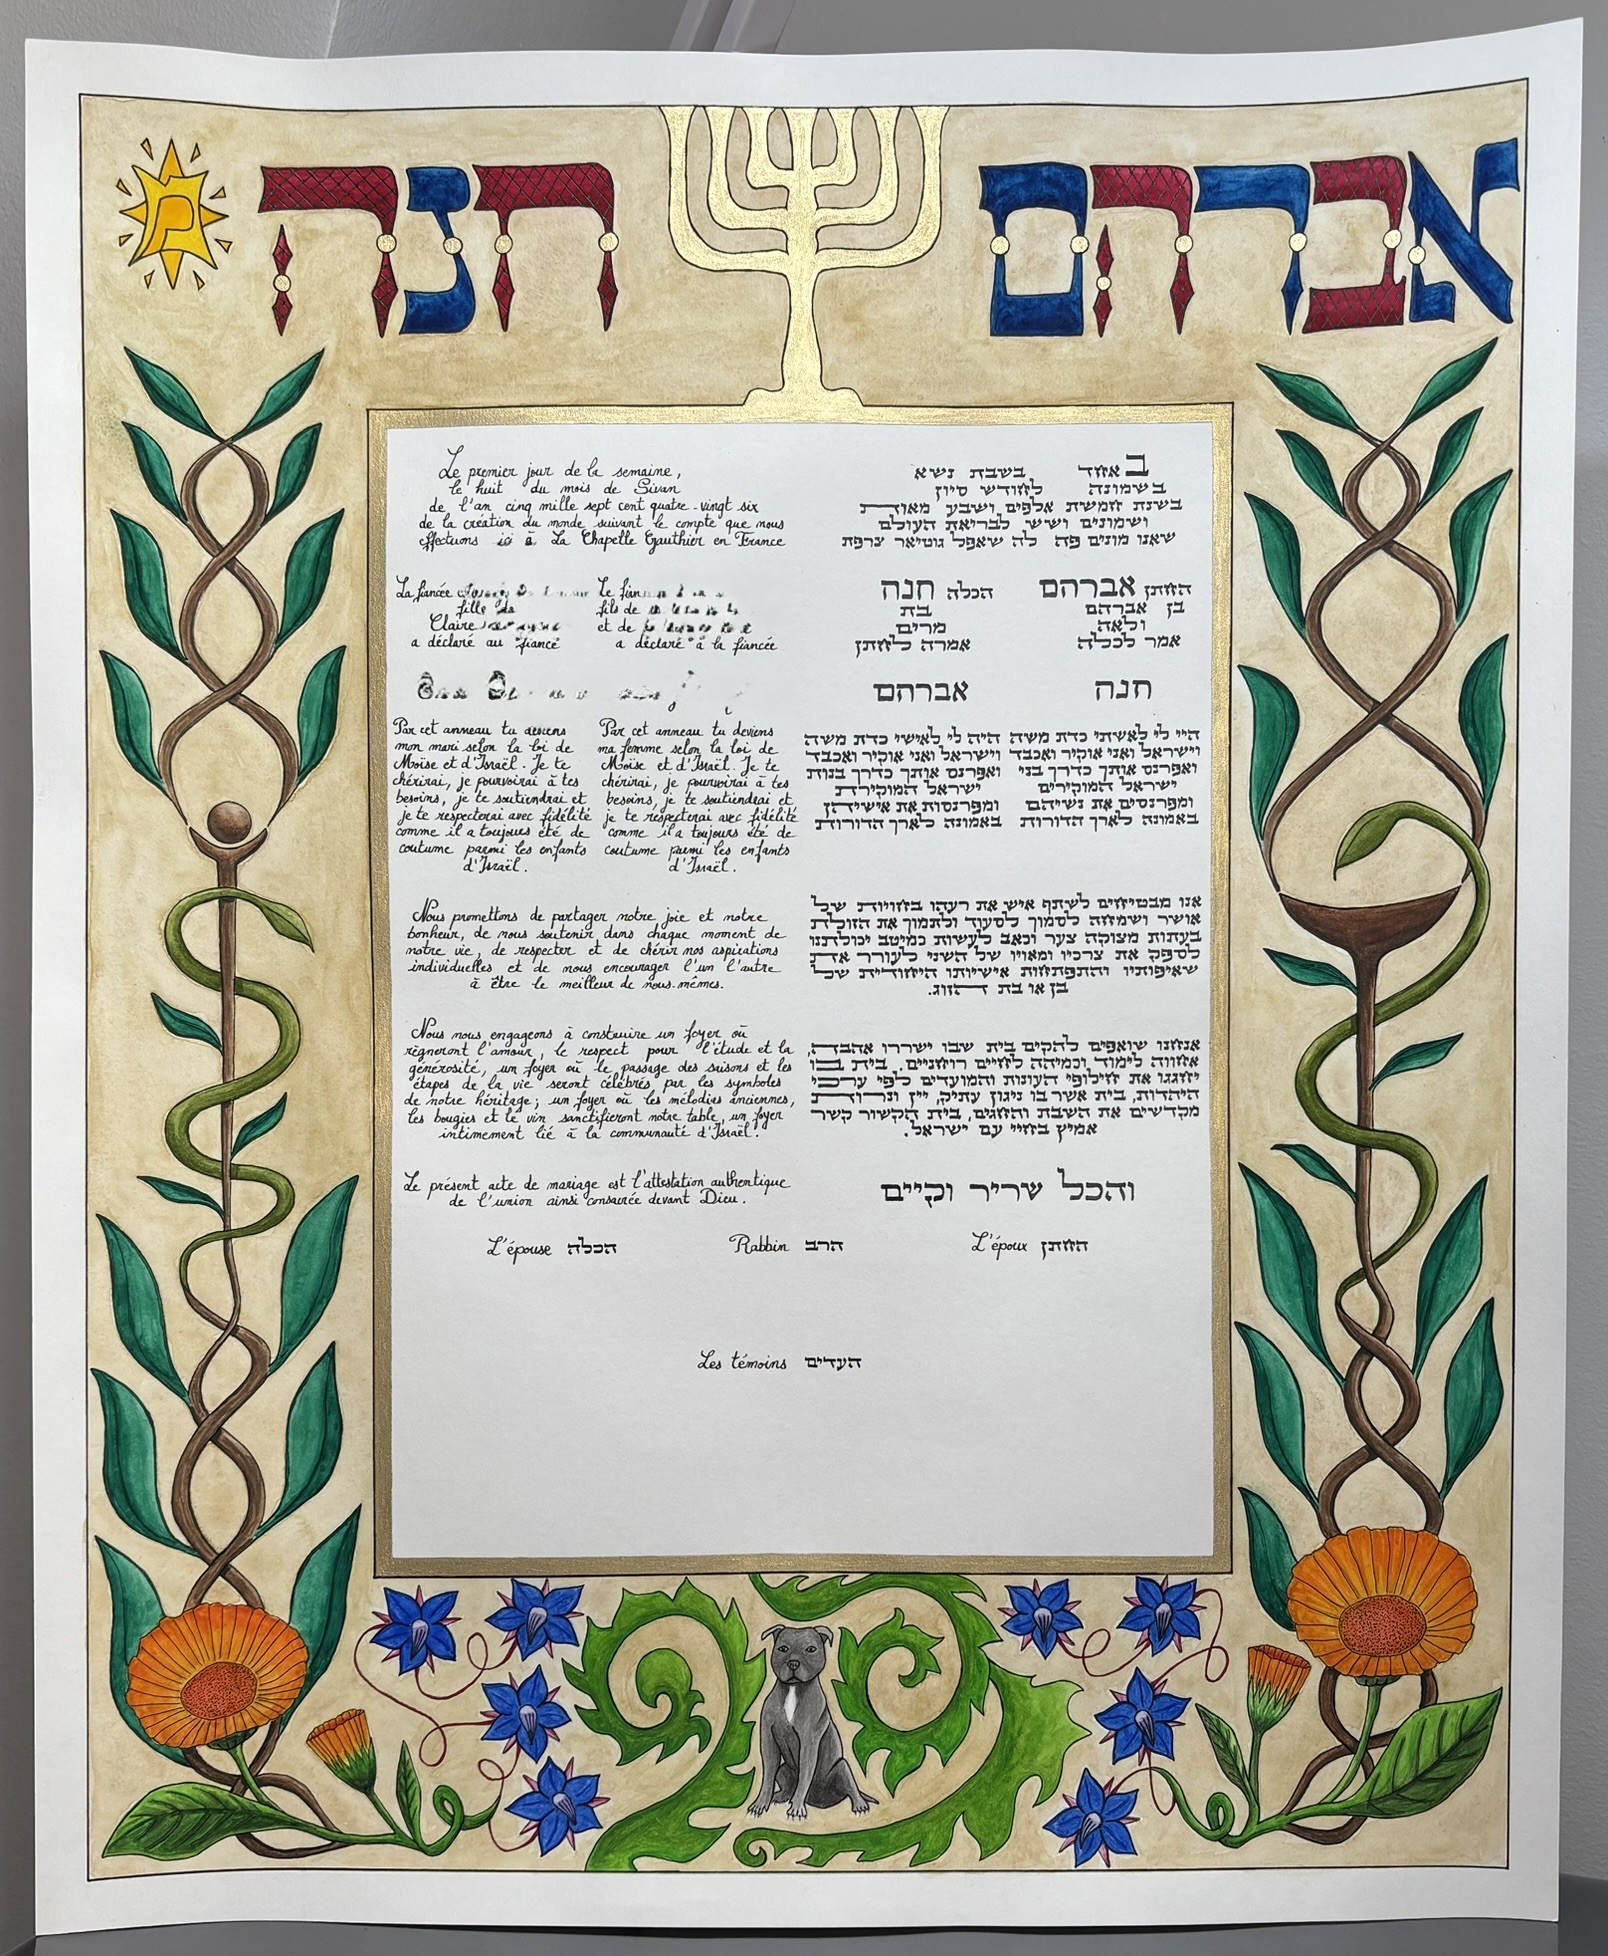 אברהם
חנה
מ
Le premier jour de la semaine,
le huit du mois de Sivan
de l'an cinq mille sept cent quatre-vingt six
de la création du monde suivant le compte que nous
effectuons ici à La Chapelle Gauthier en France
La fiancée
fille de
Claire
a déclaré au fiancé
Le fiancé
fils de
et de
a déclaré à la fiancée
Par cet anneau tu deviens
mon mari selon la loi de
Moïse et d'Israël. Je te
chérirai, je pourvoirai à tes
besoins, je te soutiendrai et
je te respecterai avec fidélité
comme il a toujours été de
coutume parmi les enfants
d'Israël.
Par cet anneau tu deviens
ma femme selon la loi de
Moïse et d'Israël. Je te
chérirai, je pourvoirai à tes
besoins, je te soutiendrai et
je te respecterai avec fidélité
comme il a toujours été de
coutume parmi les enfants
d'Israël.
Nous promettons de partager notre joie et notre
bonheur, de nous soutenir dans chaque moment de
notre vie, de respecter et de chérir nos aspirations
individuelles et de nous encourager l'un l'autre
à être le meilleur de nous-mêmes.
Nous nous engageons à construire un foyer où
règneront l'amour, le respect pour l'étude et la
générosité, un foyer où le passage des saisons et les
étapes de la vie seront célébrés par les symboles
de notre héritage; un foyer où les mélodies anciennes,
les bougies et le vin sanctifieront notre table, un foyer
intimement lié à la communauté d'Israël.
Le présent acte de mariage est l'attestation authentique
de l'union ainsi consacrée devant Dieu.
באחד בשבת נשא
בשמונה לחודש סיון
בשנת חמשת אלפים ושבע מאות
ושמונים ושש לבריאת העולם
שאנו מונים פה לה שאפל גוטיאר צרפת
החתן אברהם
בן אברהם
ולאה
אמר לכלה
חנה
הכלה חנה
בת
מרים
אמרה לחתן
אברהם
היי לי לאשתי כדת משה
וישראל ואני אוקיר ואכבד
ואפרנס אותך כדרך בני
ישראל המוקירים
ומפרנסים את נשיהם
באמונה לארך הדורות
היה לי לאישי כדת משה
וישראל ואני אוקיר ואכבד
ואפרנס אותך כדרך בנות
ישראל המוקירות
ומפרנסות את אישיהן
באמונה לארך הדורות
אנו מבטיחים לשתף איש את רעהו בחוויות של
אושר ושמחה לסמוך לסעוד ולתמוך את הזולת
בעתות מצוקה צער וכאב לעשות כמיטב יכולתנו
לספק את צרכיו ומאויו של השני לעורר את
שאיפותיו והתפתחות אישיותו היחודית של
בן או בת הזוג.
אנחנו שואפים להקים בית שבו ישררו אהבה,
אחווה לימוד וכמיהה לחיים רוחניים. בית בו
יחגגו את חילופי העונות והמועדים לפי ערכי
היהדות, בית אשר בו ניגון עתיק, יין ונרות
מקדשים את השבת והחגים, בית הקשור קשר
אמיץ בחיי עם ישראל.
והכל שריר וקיים
L'épouse הכלה
Rabbin הרב
L'époux החתן
Les témoins העדים